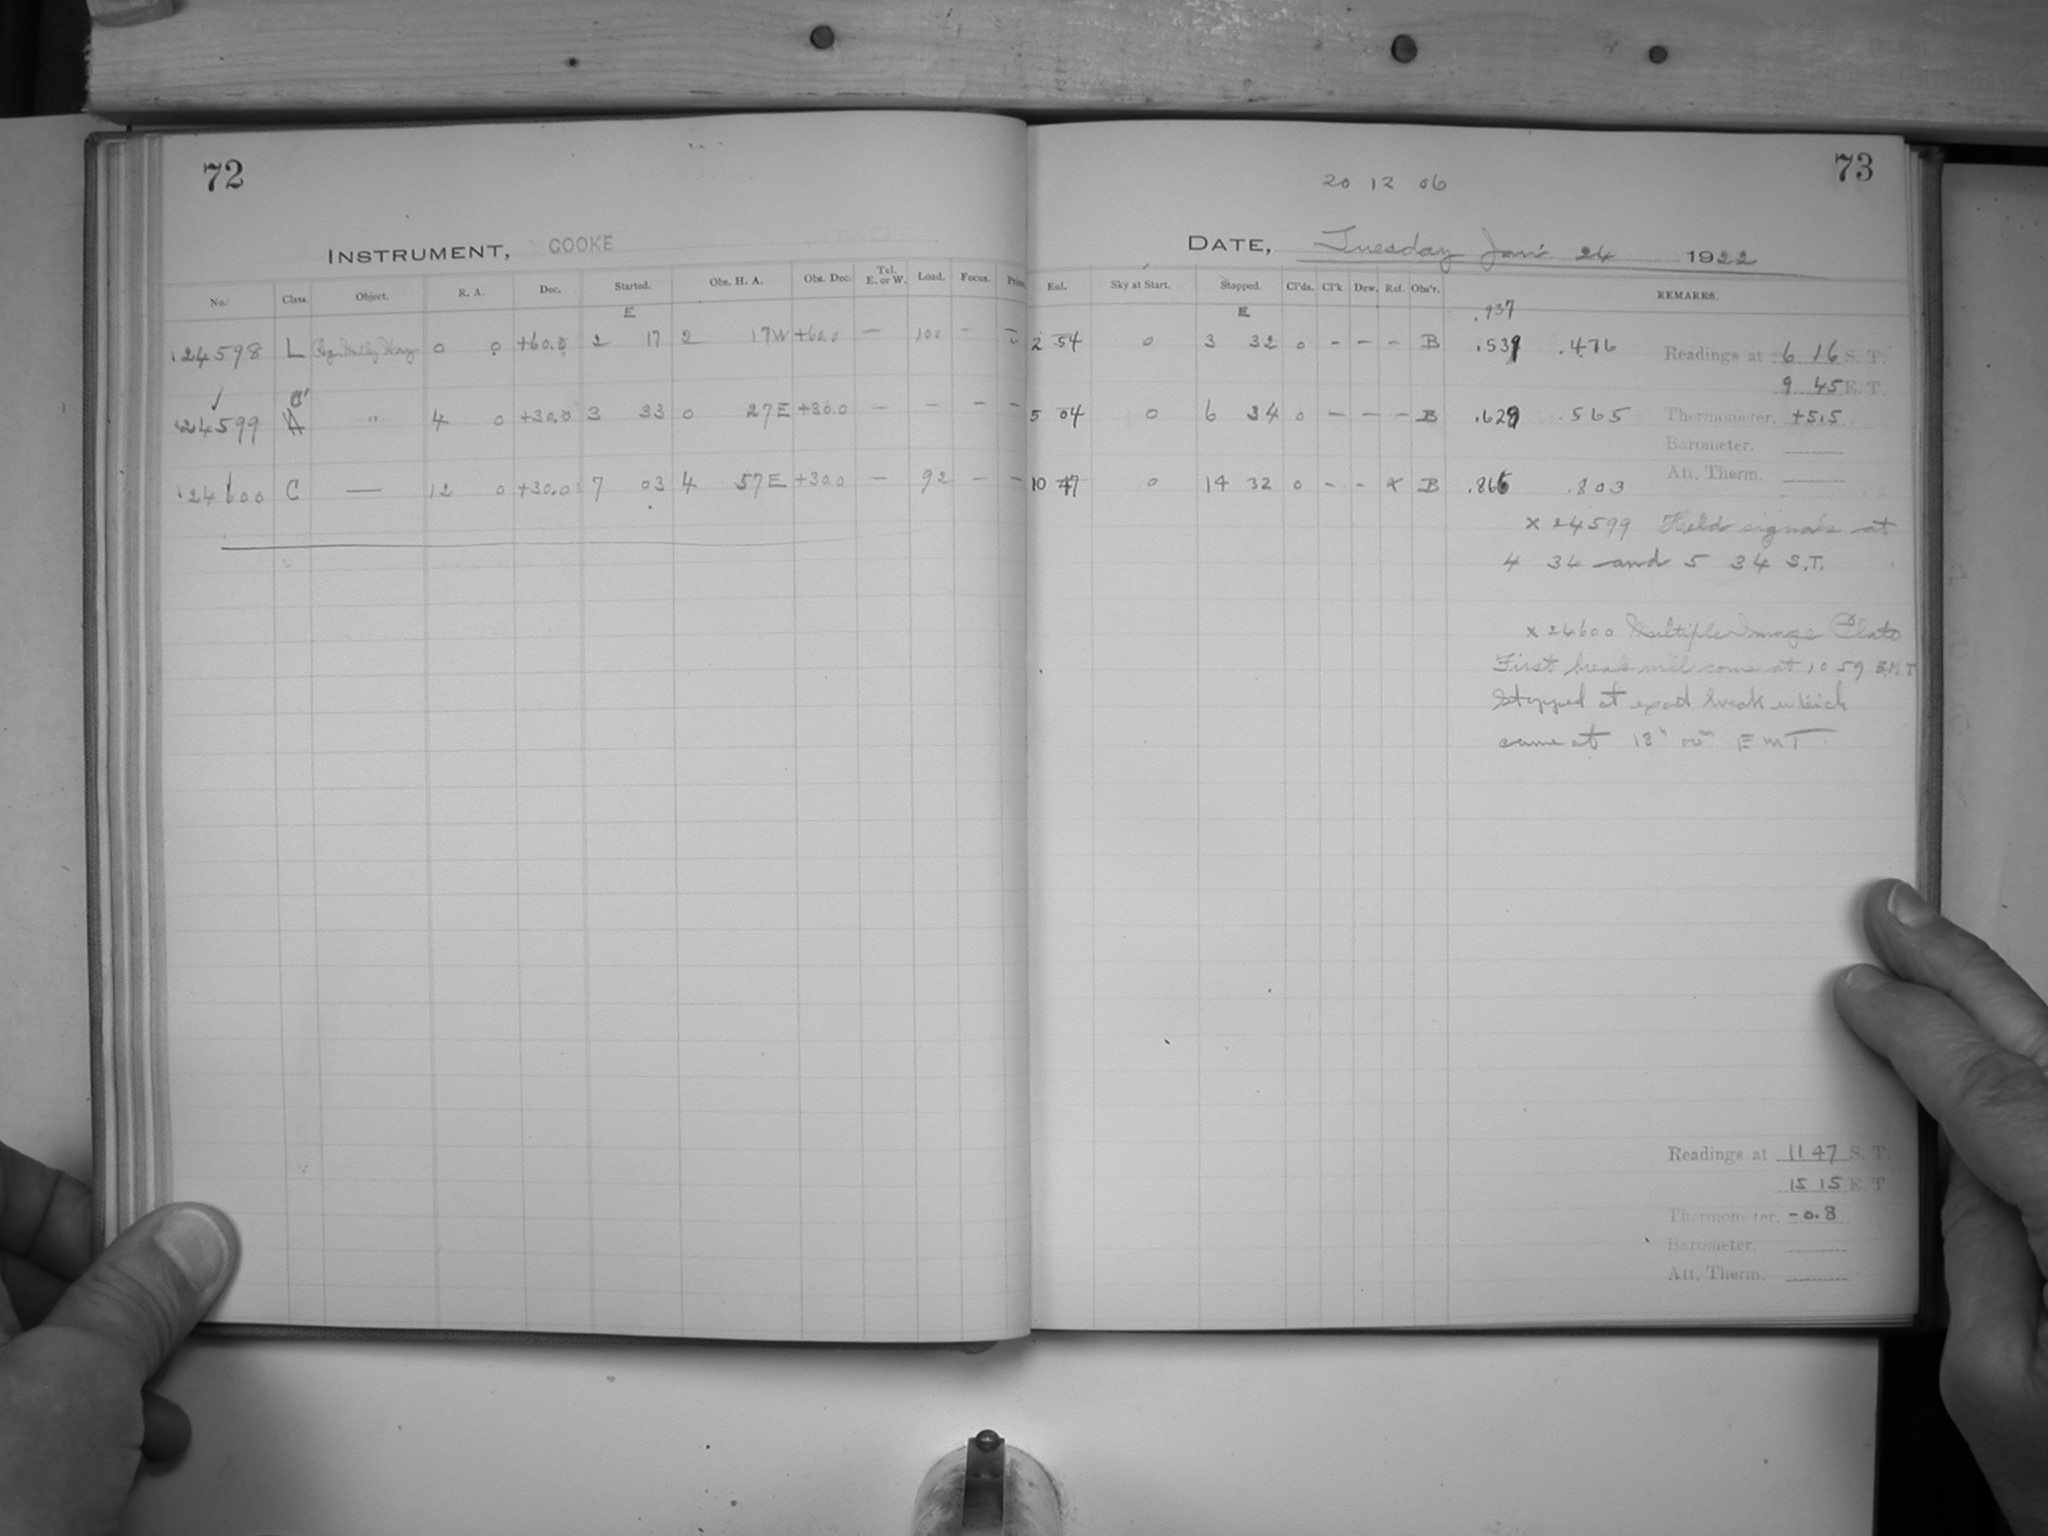 72
INSTRUMENT, COOKE
No. Class. Object. R. A. Dec. Started. Obs. H. A. Obs. Dec. Tel. E. or W. Load. Focus.
E
24598 L 0 0 +60.0 2 17 2 17W +60.0 — 100 — —
C'
24599 A " 4 0 +30.0 3 33 0 27E +30.0 — — — —
24600 C — 12 0 +30.0 7 03 4 57E +30.0 — 92 — —
73
20 12 06
DATE, Tuesday Jan 24 1922
Eul. Sky at Start. Stopped. Cl'ds. Cl'k. Dew. Ref. Obs'r. REMARKS.
E .937
2 54 0 3 32 0 - - - B .539 .476
5 04 0 6 34 0 - - - B .629 .565
10 47 0 14 32 0 - - x B .866 .803
Readings at 6 16 S. T.
9 45 E. T.
Thermometer, +5.5
Barometer.
Att. Therm.
x 24599 Held signals at
4 34 and 5 34 S.T.
x 24600 Multiple Image Plate
First break will come at 10 59 E.M.T
Stopped at exact break which
came at 18h 00m E M T.
Readings at 11 47 S. T.
15 15 E. T.
Thermometer, -0.8
Barometer.
Att. Therm.